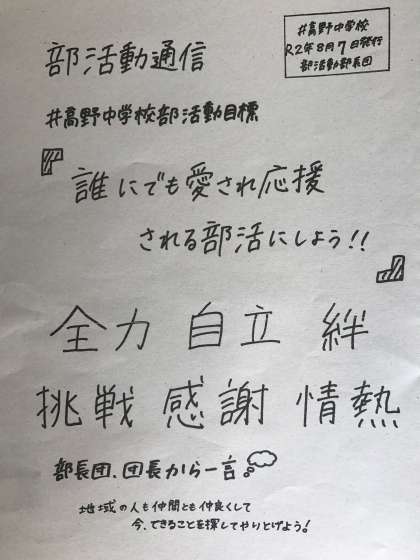 部活動通信
井高野中学校
R2年8月7日発行
部活動部長団
井高野中学校部活動目標
『誰にでも愛され応援
される部活にしよう!!』
全力 自立 絆
挑戦 感謝 情熱
部長団、団長から一言
地域の人も仲間とも仲良くして
今、できることを探してやりとげよう!